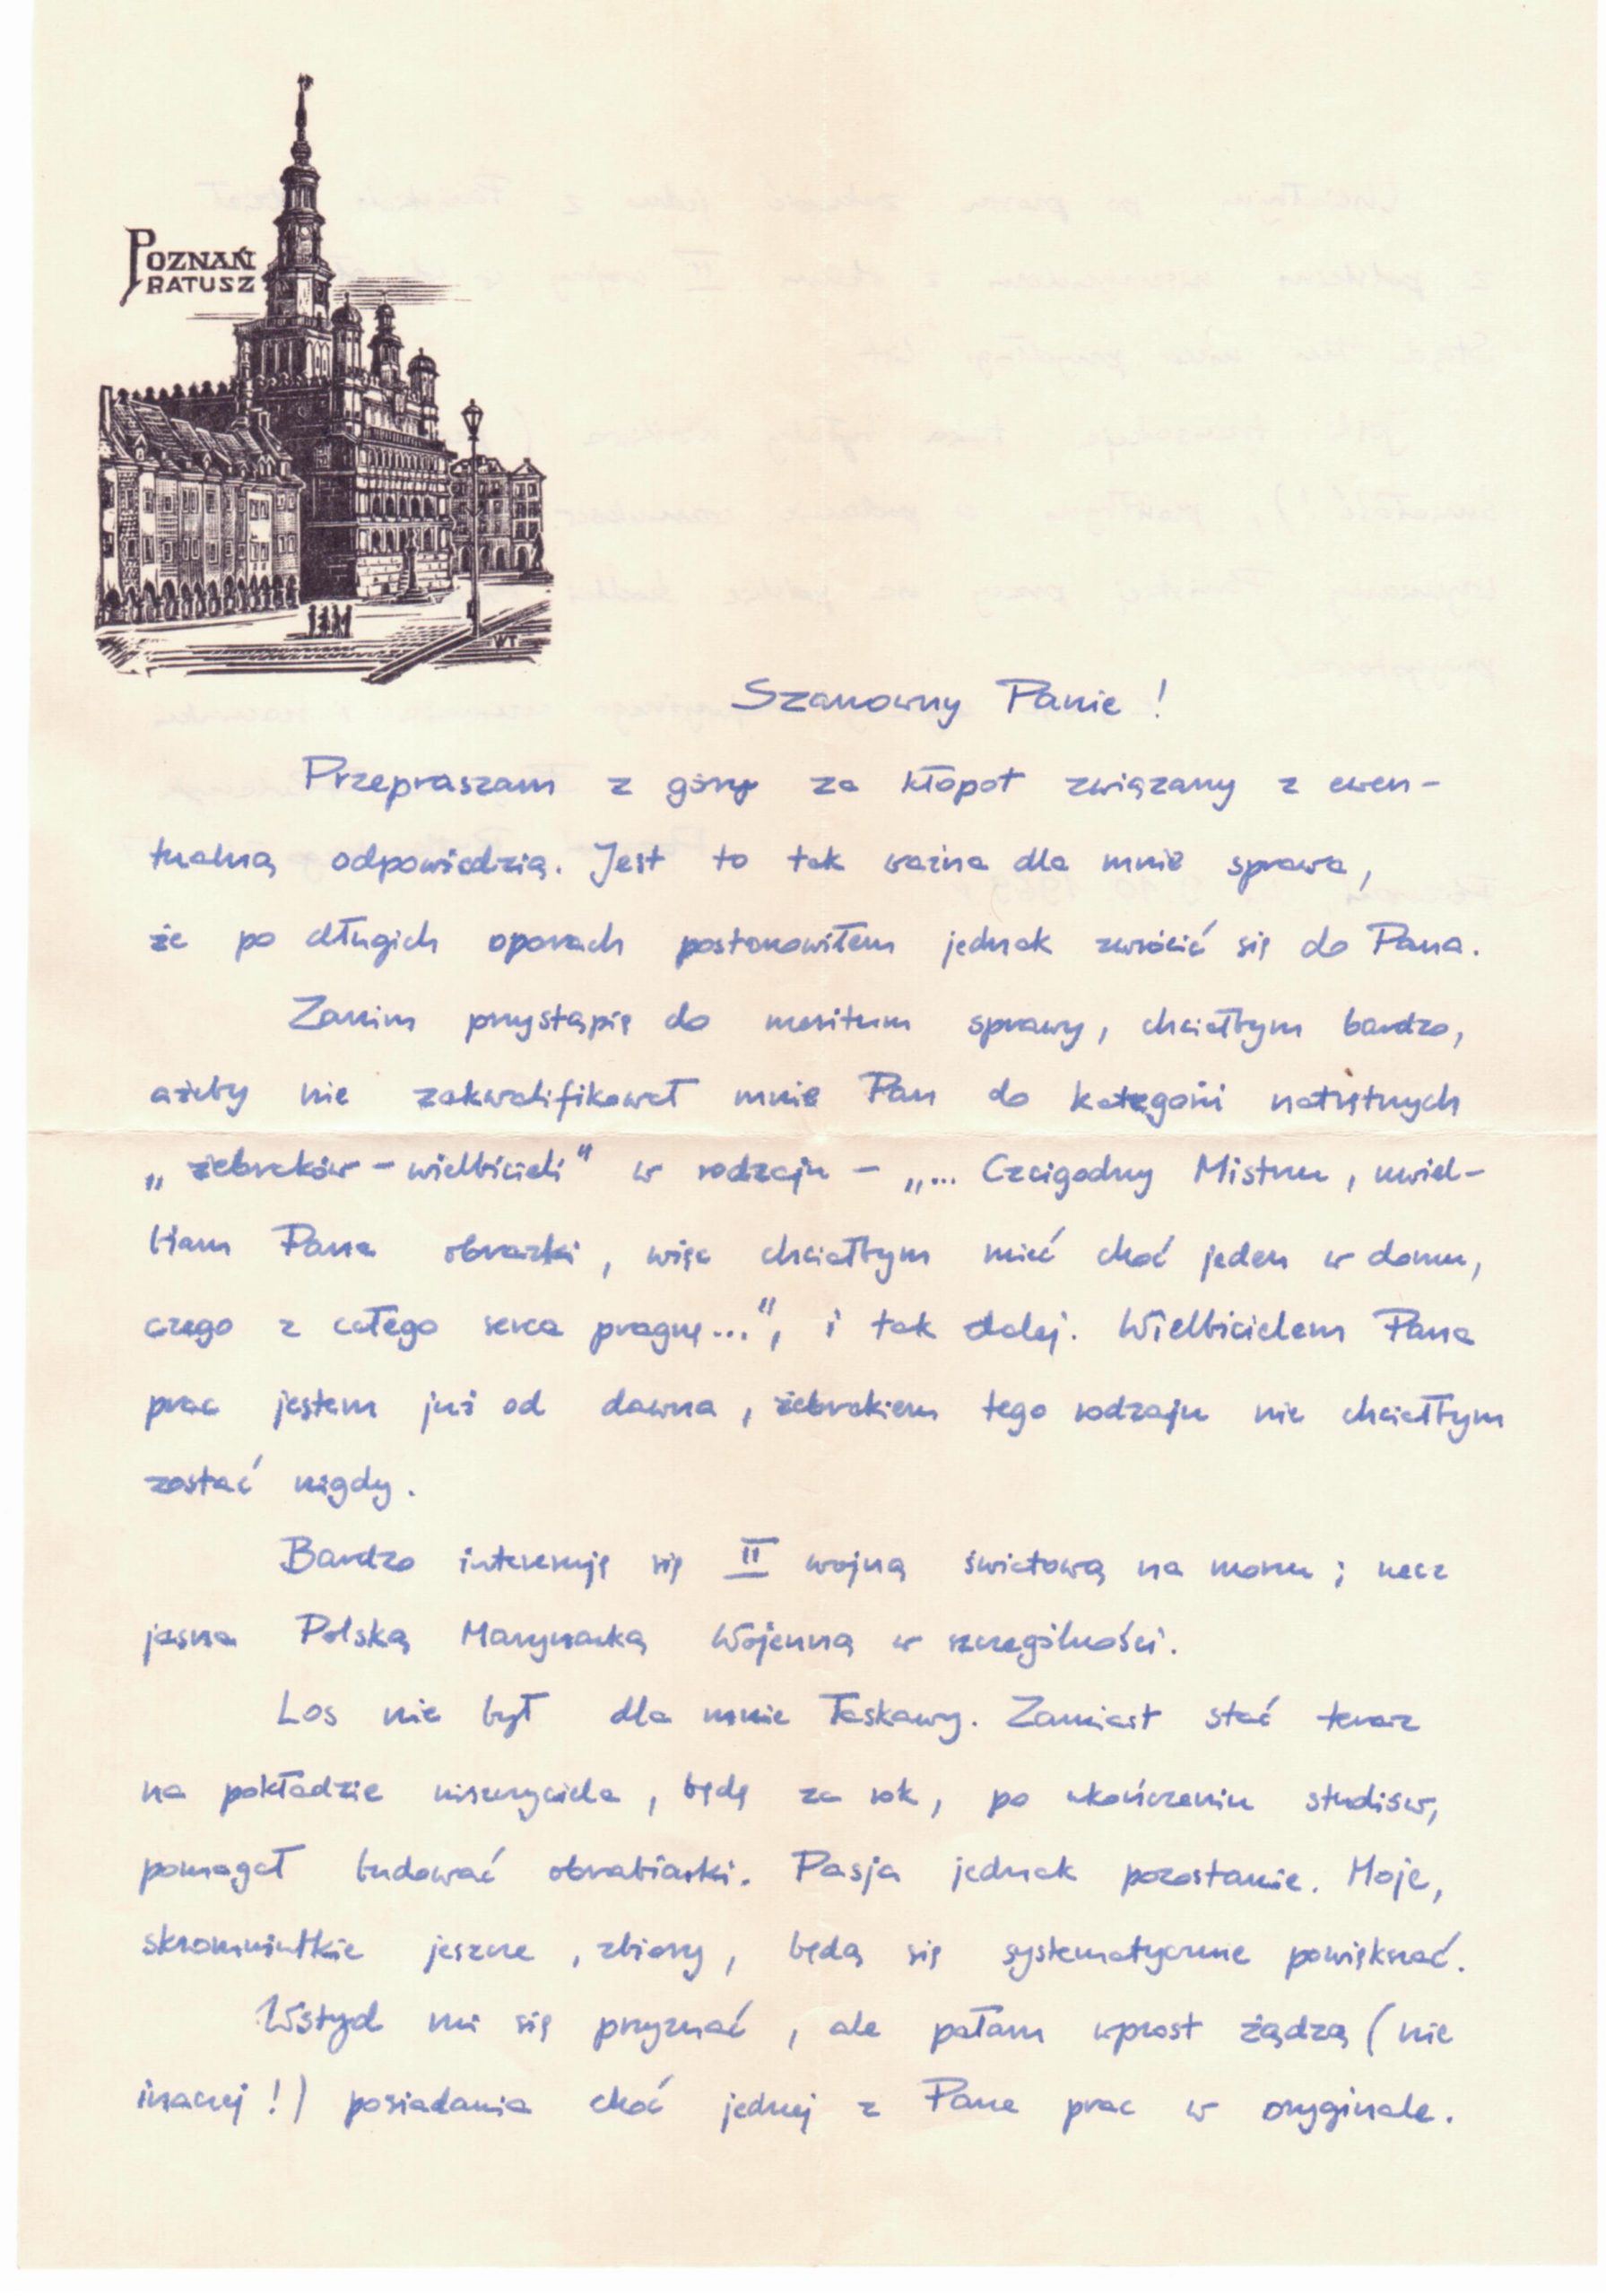 POZNAŃ
RATUSZ
WT
Szanowny Panie !
Przepraszam z góry za kłopot związany z ewen-
tualną odpowiedzią. Jest to tak ważna dla mnie sprawa,
że po długich oporach postanowiłem jednak zwrócić się do Pana.
Zanim przystąpię do meritum sprawy, chciałbym bardzo,
ażeby nie zakwalifikował mnie Pan do kategorii natrętnych
„żebraków - wielbicieli" w rodzaju - „... Czcigodny Mistrzu, uwiel-
biam Pana obrazki, więc chciałbym mieć choć jeden w domu,
czego z całego serca pragnę...", i tak dalej. Wielbicielem Pana
prac jestem już od dawna, żebrakiem tego rodzaju nie chciałbym
zostać nigdy.
Bardzo interesuję się II wojną światową na morzu ; rzecz
jasna Polską Marynarką Wojenną w szczególności.
Los nie był dla mnie łaskawy. Zamiast stać teraz
na pokładzie niszczyciela, będę za rok, po ukończeniu studiów,
pomagał budować obrabiarki. Pasja jednak pozostanie. Moje,
skromniutkie jeszcze, zbiory, będą się systematycznie powiększać.
Wstyd mi się przyznać, ale pałam wprost żądzą (nie
inaczej !) posiadania choć jednej z Pana prac w oryginale.